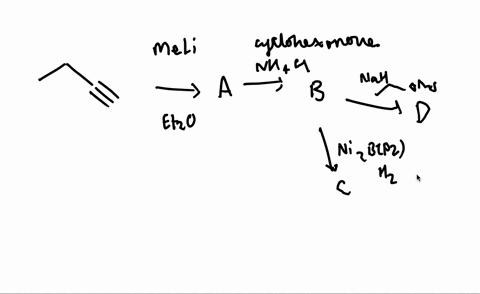 MeLi
Et₂O
A
cyclohexanone
NH₄Cl
B
NaH
OMs
D
Ni₂B(P2)
H₂
C